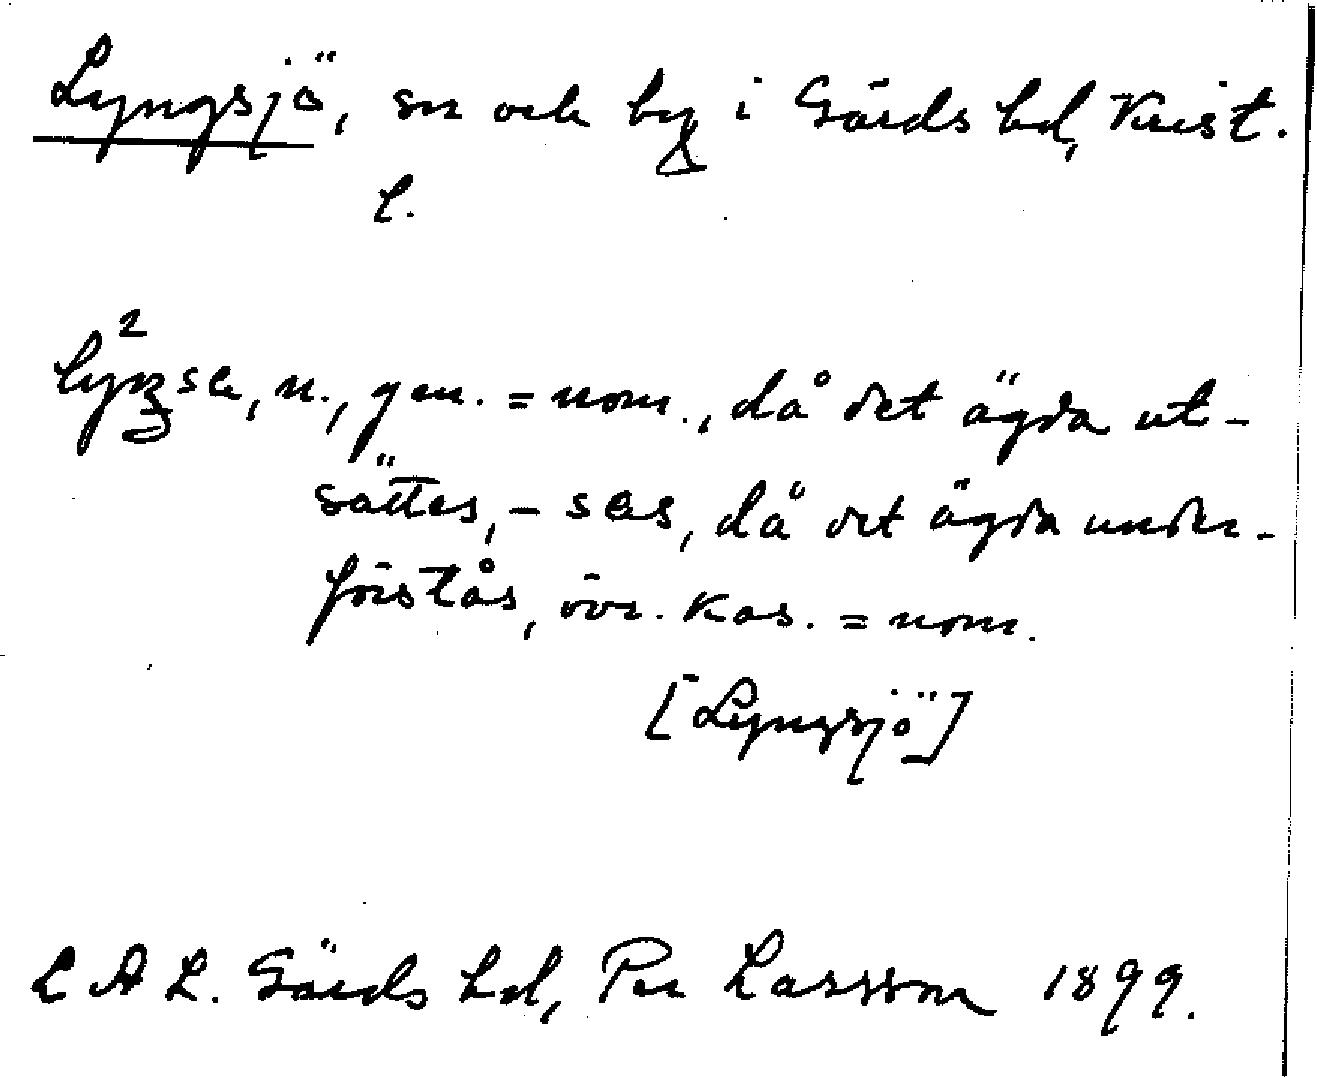 Lyngsjö, sn och by i Gärds hd, Krist.
l.
då det ägda ut-
sättes, - sas, då det ägda under-
förstås, övr. kas. = nom.
[Lyngsjö]
L A L. Gärds hd, Per Larsson 1899.